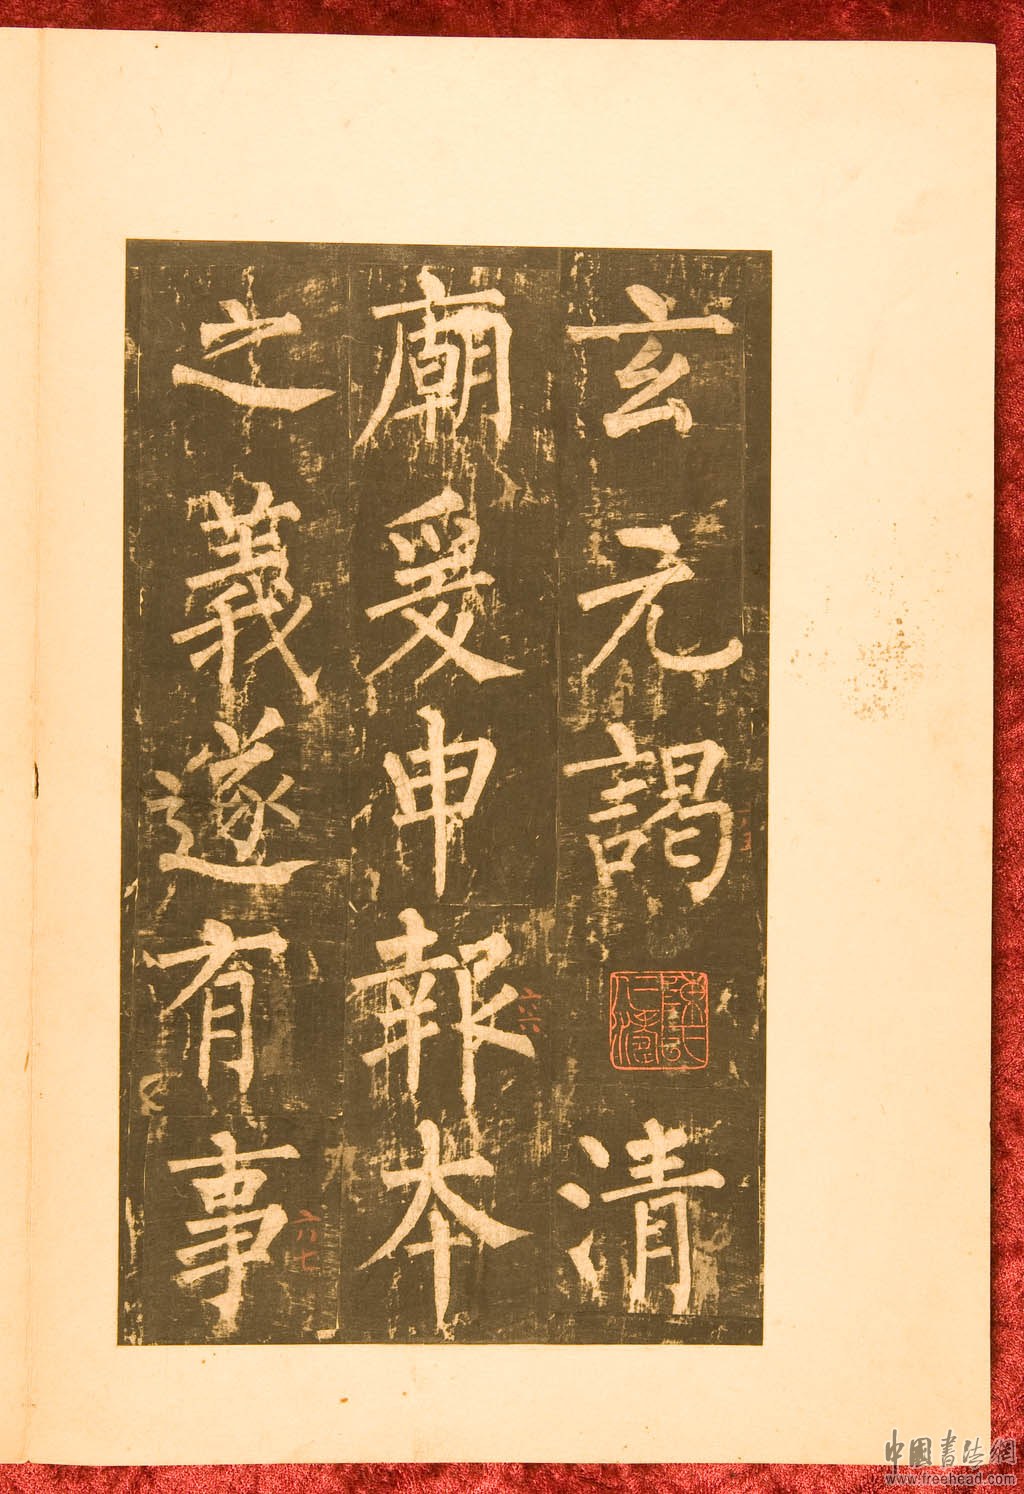 玄元謁清
廟爰申報本
之義遂有事
六六
六七
中國書法網
www.freehead.com